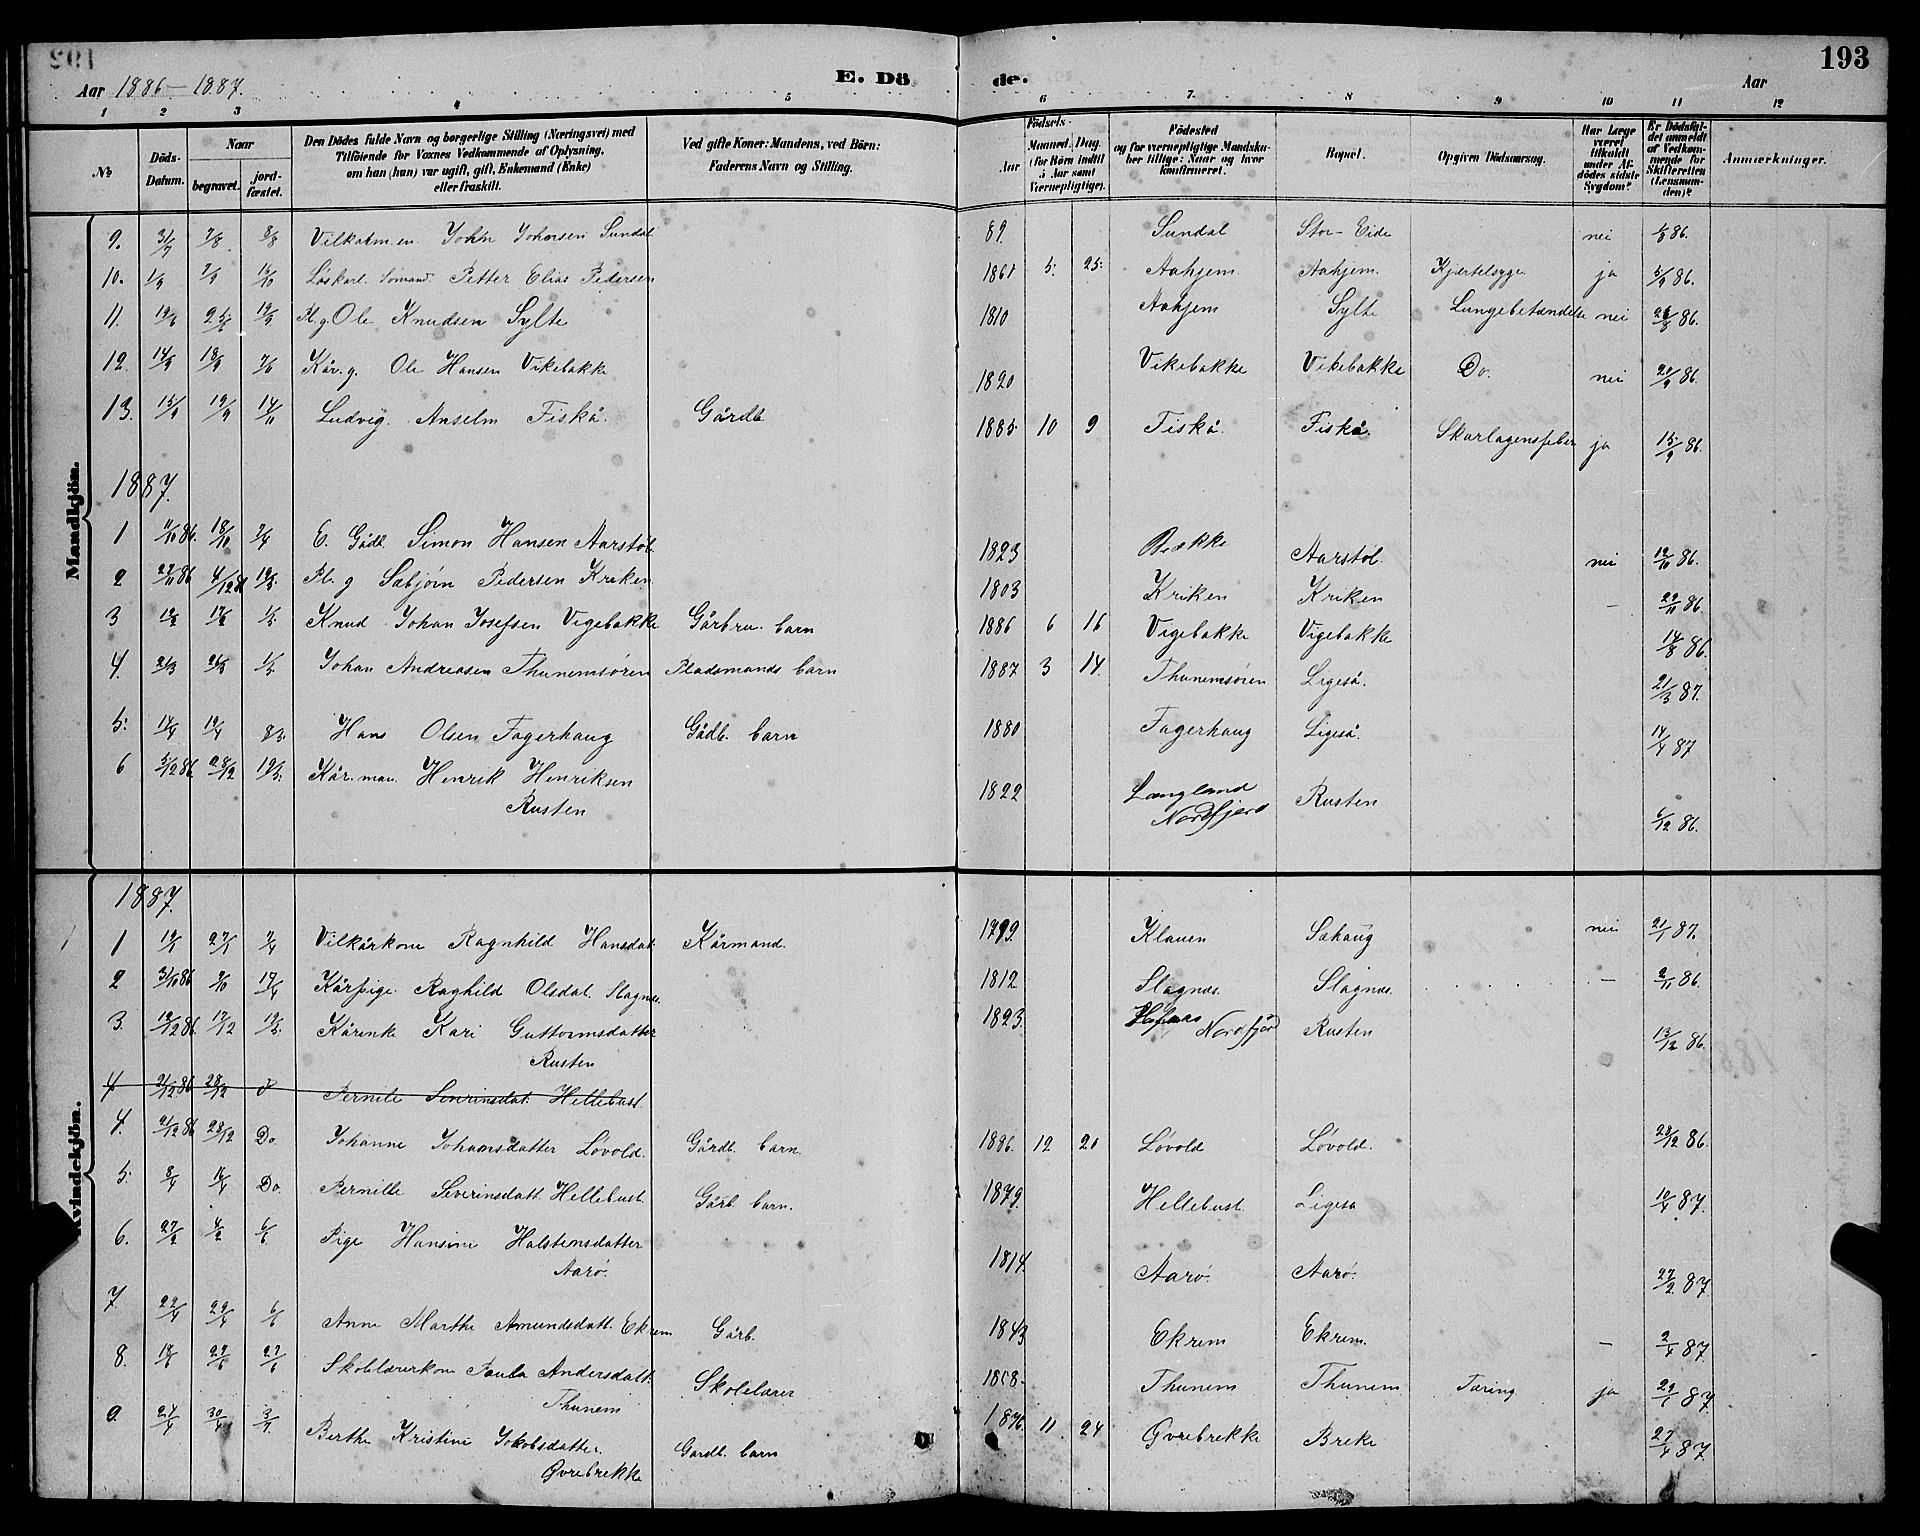 193
E. Dö de.
Aar 1886–1887. Aar
1 2 3 4 5 6 7. 8 9 10 11 12
№ Döds-Datum. Naar begravet. jord-fæstet. Den Dödes fulde Navn og borgerlige Stilling (Næringsvei) med Tilföiende for Voxnes Vedkommende af Oplysning, om han (hun) var ugift, gift, Enkemand (Enke) eller fraskilt. Ved gifte Koner: Mandens, ved Börn: Faderens Navn og Stilling. Födsels- Aar Maaned. Dag. (for Börn indtil 5 Aar samt Værnepligtige). Födested og for værnepligtige Mandskaber tillige: Naar og hvor konfirmeret. Bopæl. Opgiven Dödsaarsag. Har Læge været tilkaldt under Afdödes sidste Sygdom? Er Dödsfaldet anmeldt af Vedkommende for Skifteretten (Lensmanden)? Anmærkninger.
Mandkjön.
9. 31/7 7/8 8/8 John Johnsen Sundal 89. Sundal Stor-Eide nei 86.
10. 1/9 7/9 Løskarl Sømand Petter Elias Pedersen 1861 5. 25. Aahjem Aahjem. ja 86.
11. Pl.g. Ole Knudsen Sylte 1810 Aahjem Sylte Lungebetændelse nei 86.
12. 14/9 18/9 Kår.g. Ole Hansen Vikebakke 1820 Vikebakke Vikebakke Do. nei 20/9 86.
13. 15/9 19/9 14/11 Ludvig Anselm Fiskå. Gårdb. 1885 10 9 Fiskå. Fiskå. Skarlagensfeber ja 15/9 86.
1887.
1 11/10 86. 18/10 7/4 E. Gådb. Simon Hansen Aarstöl. 1823 Brække Aarstöl. nei 12/10 86.
2 Pl. g Sæbjörn Pedersen Kriken 1803 Kriken Kriken – 86.
3 Knud Johan Josefsen Vigebakke Gårbru. barn 1886 6 16 Vigebakke Vigebakke 86.
4. 21/3 Johan Andreasen Thunemsøren Pladsmands barn 1887 3 14. Thunemsøren Ligeså. 21/3 87.
5. 14/4 19/4 Hans Olsen Fagerhaug Gådb. barn 1880 Fagerhaug Ligeså. 14/4 87
6 5/12 86. 28/12 Kår.man. Henrik Henriksen 1822 Langland Rusten 6/12 86.
Rusten Nordfjord
Kvindekjön.
1887.
1 19/1 27/1 7/4 Vilkårkone Ragnhild Hansdat. Kårmand. 1799. Klauen Sæhaug nei 21/1 87.
2 31/10 86 17/4 Kårpige. Raghild Olsdat. Slagnes. 1812 Slagnes. Slagnes. – 2/11 86.
3. 12/12 86. 17/12 Kårenke Kari Guttormsdatter 1823. Nordfjord Rusten 13/12 86.
Rusten
4 21/12 86 28/12 Pernile Severinsdat. Hellebust
4. 21/12 86 28/12 Do. Johanne Johansdatter Løvold. Gårdb. barn. 1886. 12 20 Løvold Løvold. 28/12 86.
5. 8/4 Do. Pernille Severinsdatt. Hellebust Gårb. barn. 1879. Hellebust. Ligesa 10/4 87.
6. 27/2 Pige Hansine Halstensdatter 1814. Aarø. Aarø. 27/2 87.
Aarø.
7. 22/4 29/4 6/6 Anne Marthe Amundsdatt. Ekrem Gårb. 1843 Ekrem Ekrem. – 87.
8. Skolelærerkone Paula Andersdatt. Skolelærer Thunem Thunem Tæring ja 87
Thunem
9. 24/4 30/4 Berthe Kristine Jakobsdatter. Gardb. barn 11. 24 Øvrebrekke Breke 27/4 87.
Øvrebrekke